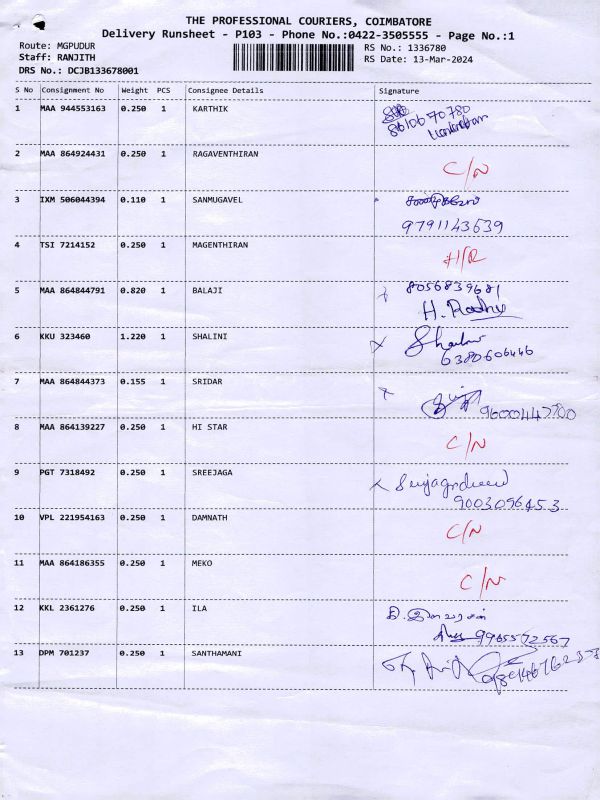 THE PROFESSIONAL COURIERS, COIMBATORE
Delivery Runsheet - P103 - Phone No.:0422-3505555 - Page No.:1
Route: MGPUDUR
RS No.: 1336780
Staff: RANJITH
RS Date: 13-Mar-2024
DRS No.: DCJB133678001
S No Consignment No Weight PCS Consignee Details Signature
1 MAA 944553163 0.250 1 KARTHIK
8610670780
2 MAA 864924431 0.250 1 RAGAVENTHIRAN
C/N
3 IXM 506044394 0.110 1 SANMUGAVEL
9791143639
4 TSI 7214152 0.250 1 MAGENTHIRAN
H/R
5 MAA 864844791 0.820 1 BALAJI 8056839681
H. Radha
6 KKU 323460 1.220 1 SHALINI
6380606446
7 MAA 864844373 0.155 1 SRIDAR
8 MAA 864139227 0.250 1 HI STAR
C/N
9 PGT 7318492 0.250 1 SREEJAGA
9003096453
10 VPL 221954163 0.250 1 DAMNATH
C/N
11 MAA 864186355 0.250 1 MEKO
C/N
12 KKL 2361276 0.250 1 ILA
9965572567
13 DPM 701237 0.250 1 SANTHAMANI